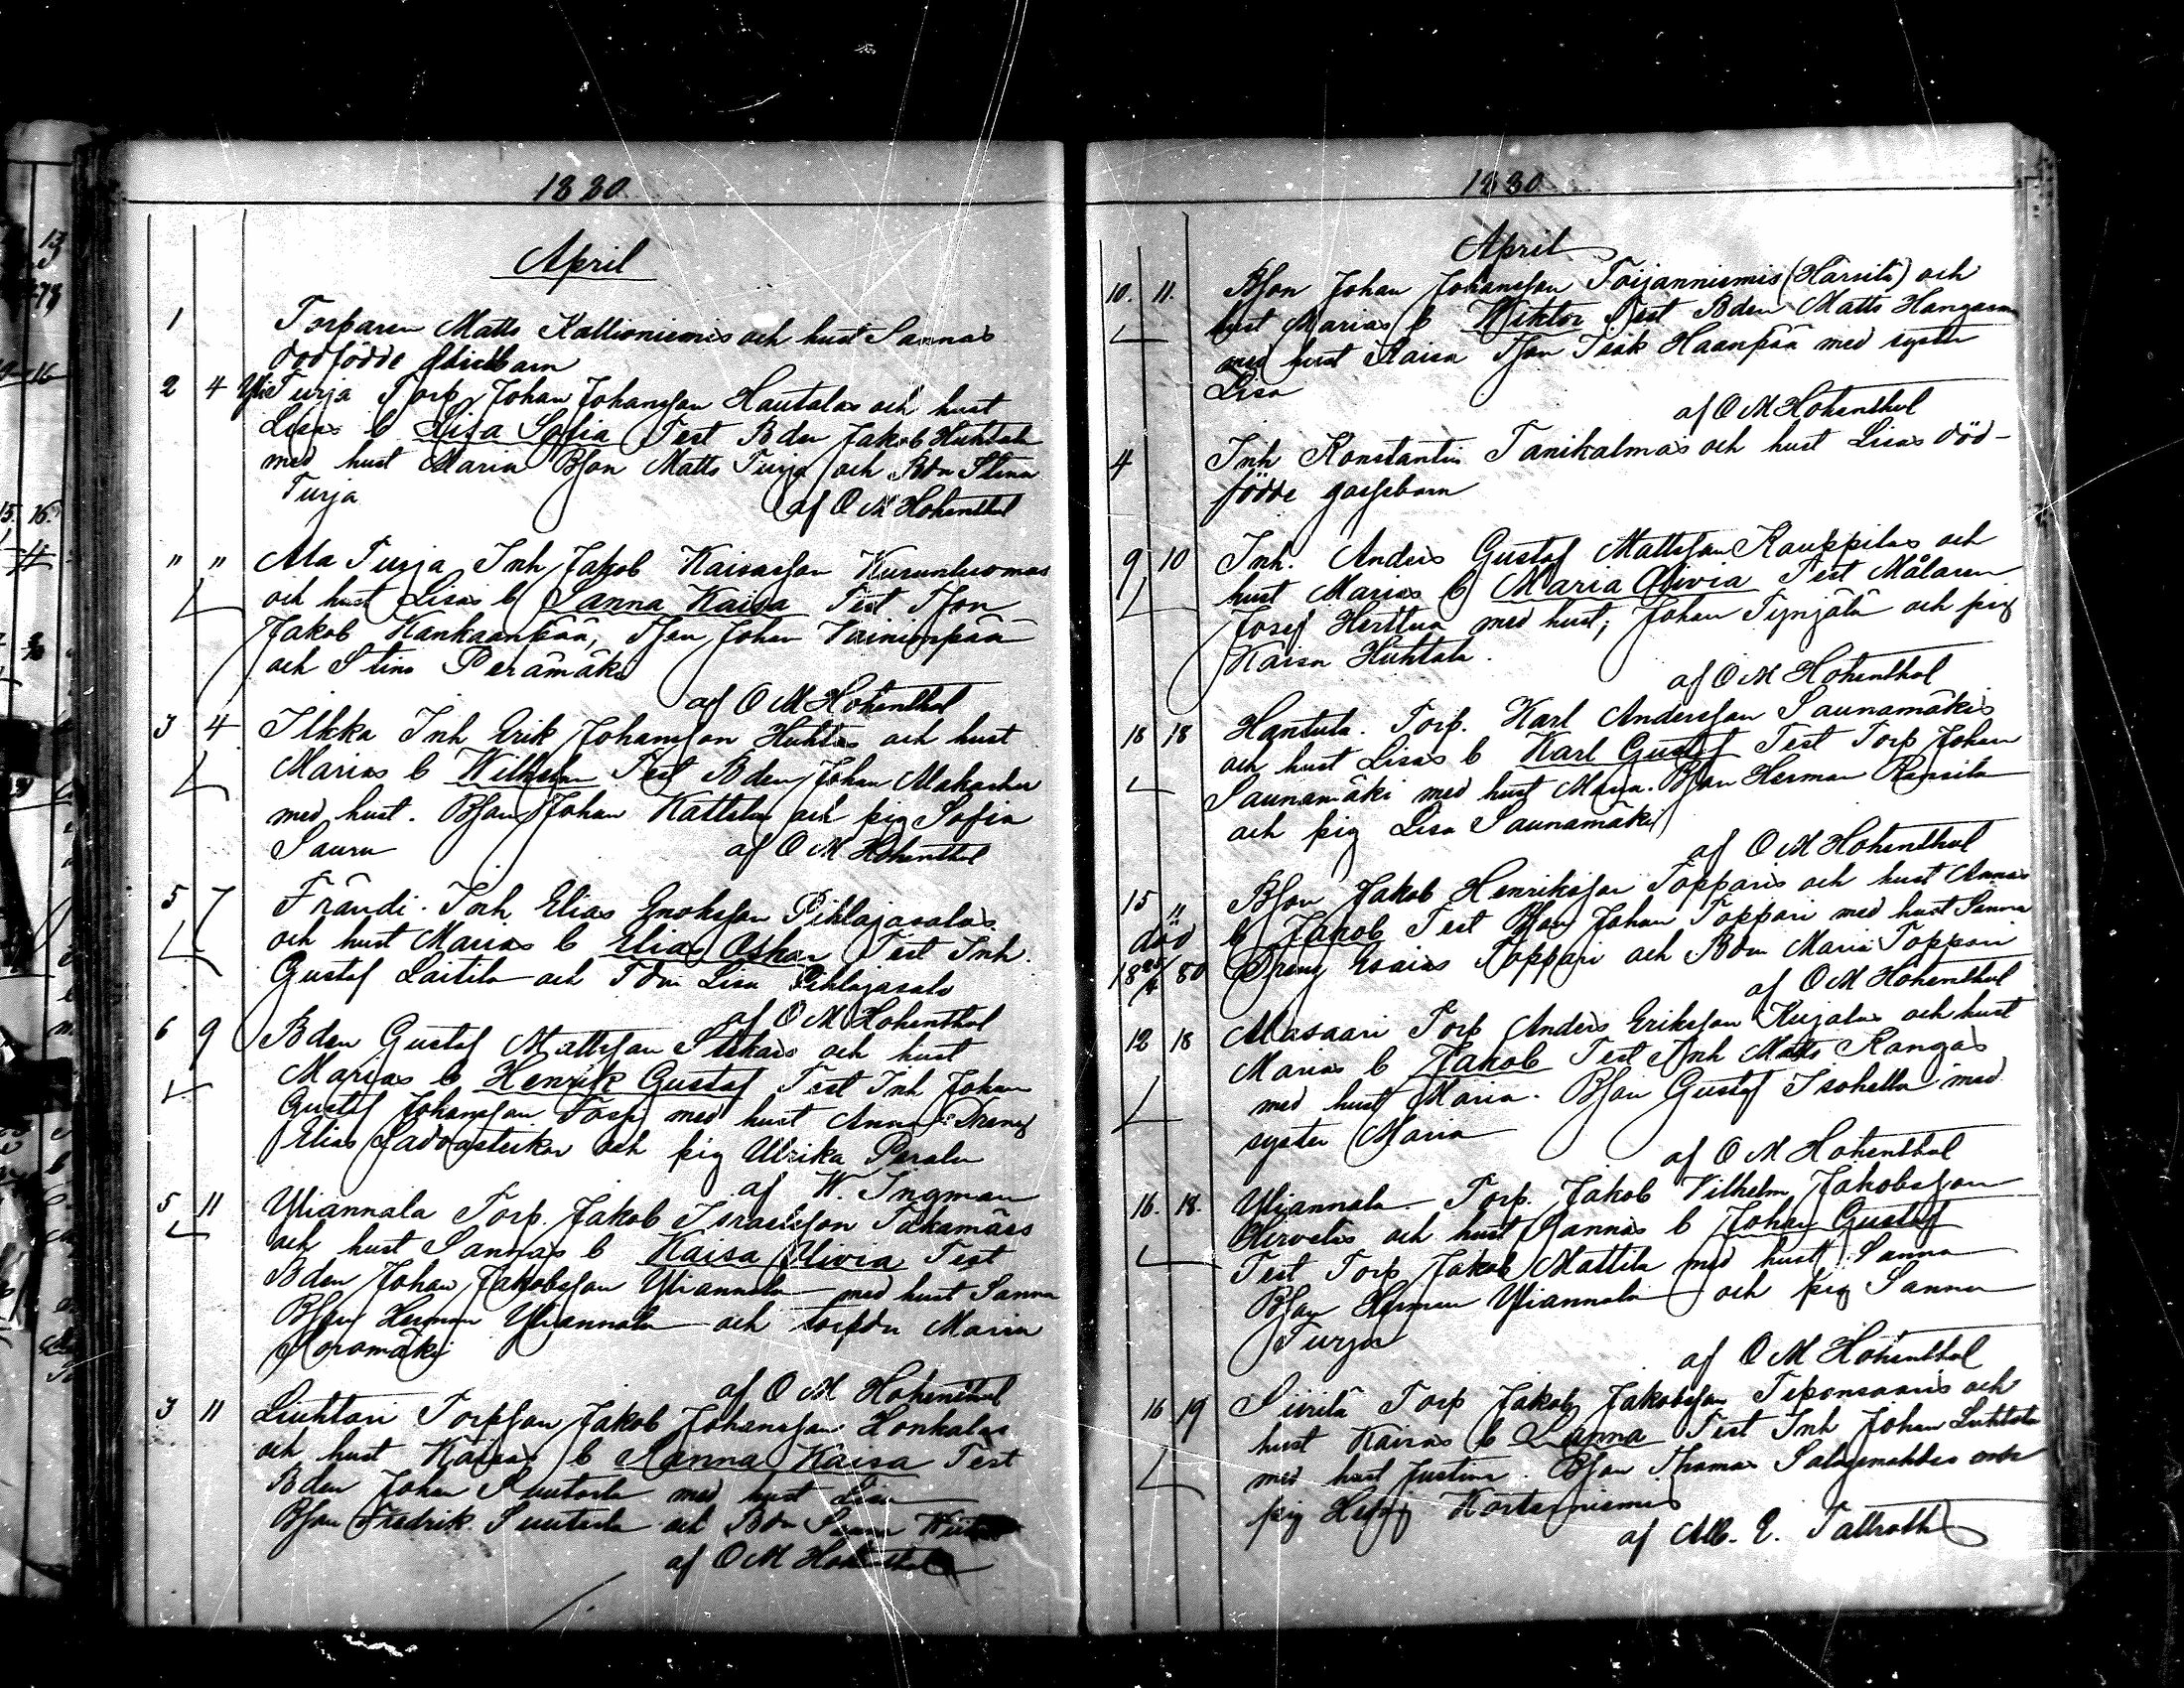 1880
April
1 Torparen Matts Kallioniemis och hust Sannas
dödfödde flickbarn
2 4 Yli Turja Torp Johan Johansson Hautalas och hust
Lisas b Lisa Sofia Test Bden Jakob Huhtala
med hust Maria Bson Matts Turja och Bdn Stina
Turja
af O M Hohenthal
" " Ala Turja Inh Jakob Kaisasson Kurunluomas
och hust Lisas b Sanna Kaisa Test Tson
Jakob Kankaanpää, Tson Johan Vainionpää
och Stina Perämäki
af O M Hohenthal
3 4 Ilkka Inh Erik Johansson Huhtas och hust
Marias b Wilhelm Test Bden Johan
med hust. Bson Johan Kattelus och pig Sofia
Sauru
af O M Hohenthal
5 7 Frändi. Inh Elias Enoksson Pihlajasalos
och hust Marias b Elias Oskar Test Inh.
Gustaf Laitila och Tdn Lisa Pihlajasalo
af O M Hohenthal
6 9 Bden Gustaf Mattsson och hust
Marias b Henrik Gustaf Test Inh Johan
Gustaf Johansson med hust Anna Dreng
Elias och pig Ulrika Perala
af W. Ingman
5 11 Yliannala Torp. Jakob Israelsson Takamäes
och hust Sannas b Kaisa Olivia Test
Bden Johan Jakobsson Yliannala med hust Sanna
Bson Herman Yliannala och torpdn Maria
af O M Hohenthal
3 11 Liuhtari Torpson Jakob Johansson Honkalas
och hust Kaisas b Sanna Kaisa Test
Bden Johan Suutarla med hust Lisa
Bson Fredrik Suutarla och Bdn Sanna
af O M Hohenthal
1880
April
10. 11. Bson Johan Johansson Töijänniemis (Harsila) och
hust Marias b Wiktor Test Bden Matts
med hust Kaisa Tson Isak Haanpää med syster
Lisa
af O M Hohenthal
4 Inh Konstantin Tanikalmas och hust Lisas död-
födde gossebarn
9 10 Inh. Anders Gustaf Mattsson Kauppilas och
hust Marias b Maria Olivia Test Målaren
Josef Herttua med hust; Johan Tynjälä och pig
Kaisa Huhtala.
af O M Hohenthal
18 18 Hantula. Torp. Karl Andersson Saunamäkis
och hust Lisas b Karl Gustaf Test Torp Johan
Saunamäki med hust Maria. Bson Herman
och pig Lisa Saunamäki
af O M Hohenthal
15 " Bson Jakob Henriksson Topparis och hust Annas
död b Jakob Test Bson Johan Toppari med hust Sanna
18 /4 80 Dreng Esaias Toppari och Bdn Maria Toppari
af O M Hohenthal
12 18 Alasaari Torp Anders Eriksson Kujalas och hust
Marias b Jakob Test Inh Matts Kangas
med hust Maria. Bson Gustaf Isohella med
syster Maria
af O M Hohenthal
16. 18. Yliannala Torp. Jakob Vilhelm Jakobsson
Hirvelas och hust Sannas b Johan Gustaf
Test Torp Jakob Mattila med hust Sanna
Bson Herman Yliannala och pig Sanna
Turja
af O M Hohenthal
16 19 Siirilä Torp Jakob Jakobsson Teponsaaris och
hust Kaisas b Sanna Test Inh Johan Luhtala
med hust Justina. Bson Thomas och
pig
af Alb. E. Tallroth